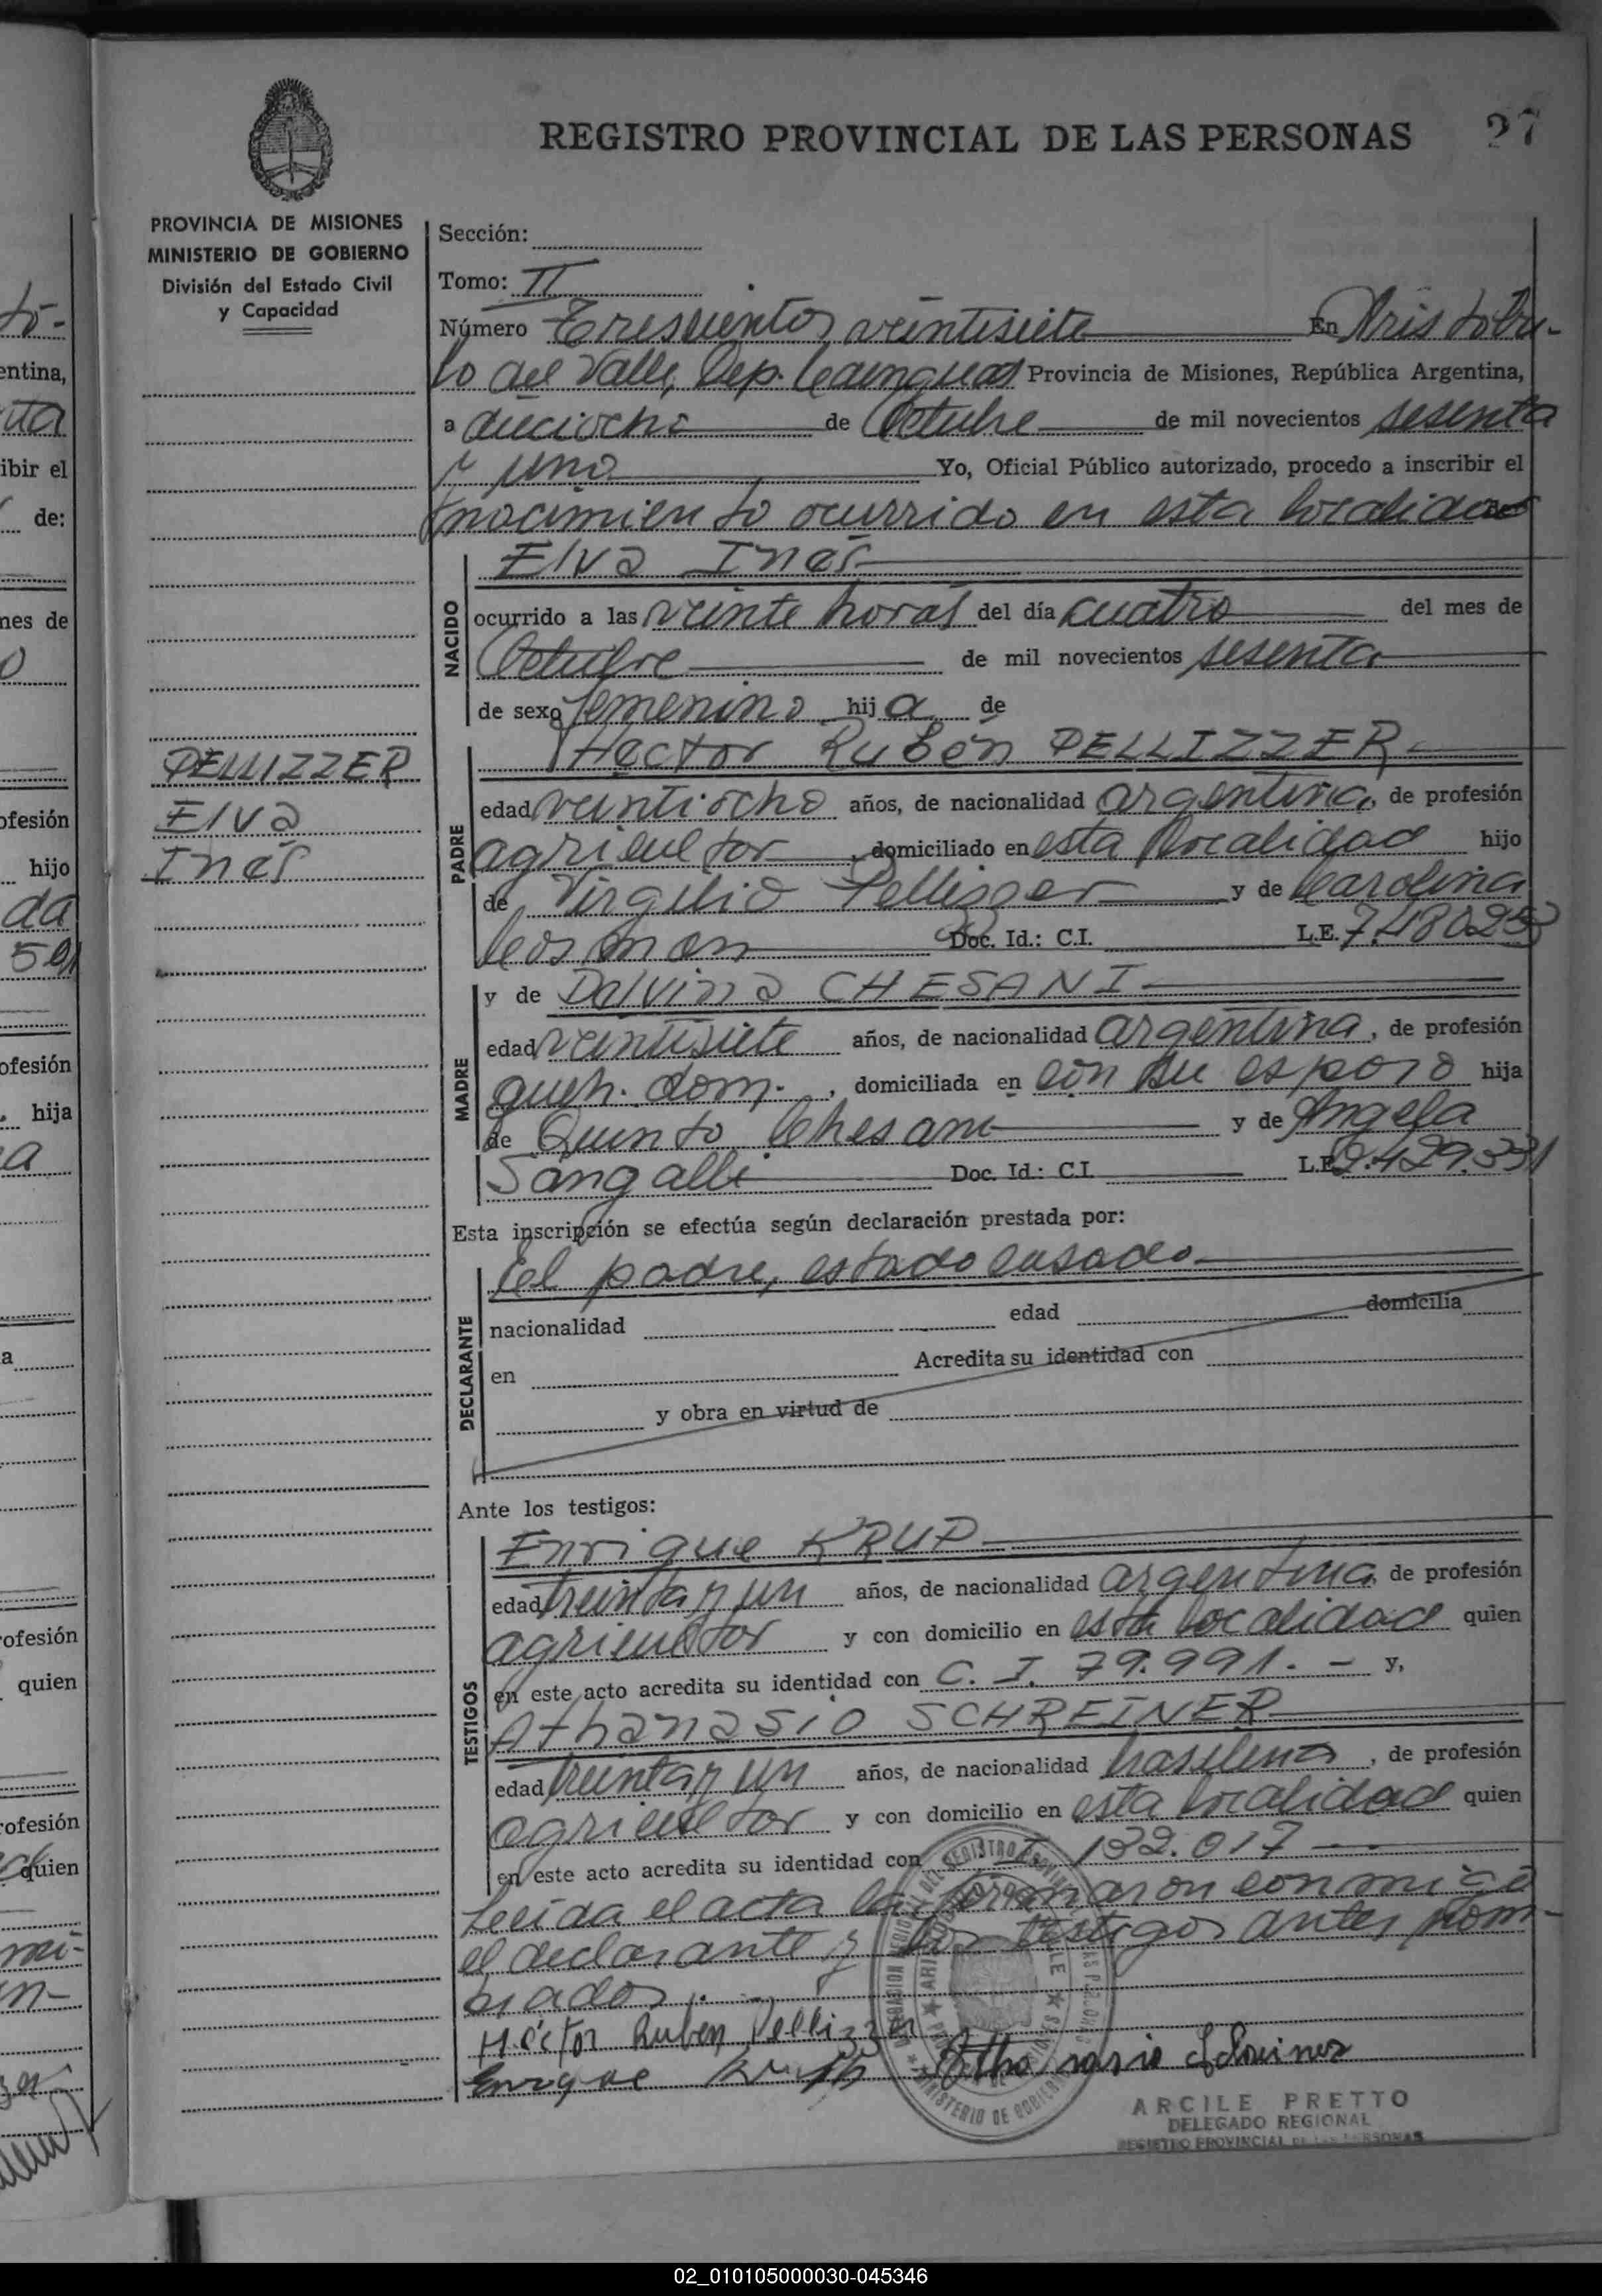 REGISTRO PROVINCIAL DE LAS PERSONAS 27
PROVINCIA DE MISIONES
MINISTERIO DE GOBIERNO
División del Estado Civil
y Capacidad
PELLIZZER
Elva
Inés
Sección:
Tomo: II
Número Trescientos veintisiete En Aristobu-
lo del Valle, Dep. Cainguas Provincia de Misiones, República Argentina,
a dieciocho de Octubre de mil novecientos sesenta
y uno Yo, Oficial Público autorizado, procedo a inscribir el
nacimiento ocurrido en esta localidad
NACIDO
Elva Inés
ocurrido a las veinte horas del día cuatro del mes de
Octubre de mil novecientos sesenta
de sexo femenino hija de
PADRE
Héctor Rubén PELLIZZER
edad veintiocho años, de nacionalidad argentina, de profesión
agricultor, domiciliado en esta localidad hijo
de Virgilio Pellizzer y de Carolina
Cosman Doc. Id.: C.I. L.E. 7.480253
MADRE
y de Dalvina CHESANI
edad veintisiete años, de nacionalidad argentina, de profesión
queh. dom., domiciliada en con su esposo hija
de Quinto Chesani y de Angela
Sangalli Doc. Id.: C.I. L.E. 2.429.331
Esta inscripción se efectúa según declaración prestada por:
DECLARANTE
El padre, estado casado
nacionalidad edad domicilia
en Acredita su identidad con
y obra en virtud de
Ante los testigos:
TESTIGOS
Enrique KRUP
edad treinta y un años, de nacionalidad argentina, de profesión
agricultor y con domicilio en esta localidad quien
en este acto acredita su identidad con C. I. 79.991.- y,
Athanasio SCHREINER
edad treinta y un años, de nacionalidad brasilena, de profesión
agricultor y con domicilio en esta localidad quien
en este acto acredita su identidad con I. 132.017
Leida el acta la firmaron conmigo
el declarante y los testigos antes nom-
brados.-
Héctor Ruben Pellizzer
Enrique Athanasio
MINISTERIO DE GOBIERNO
ARCILE PRETTO
DELEGADO REGIONAL
REGISTRO PROVINCIAL DE LAS PERSONAS
entina,
ibir el
de:
mes de
ofesión
hijo
da
ofesión
hija
a
ofesión
quien
ofesión
quien
02_010105000030-045346